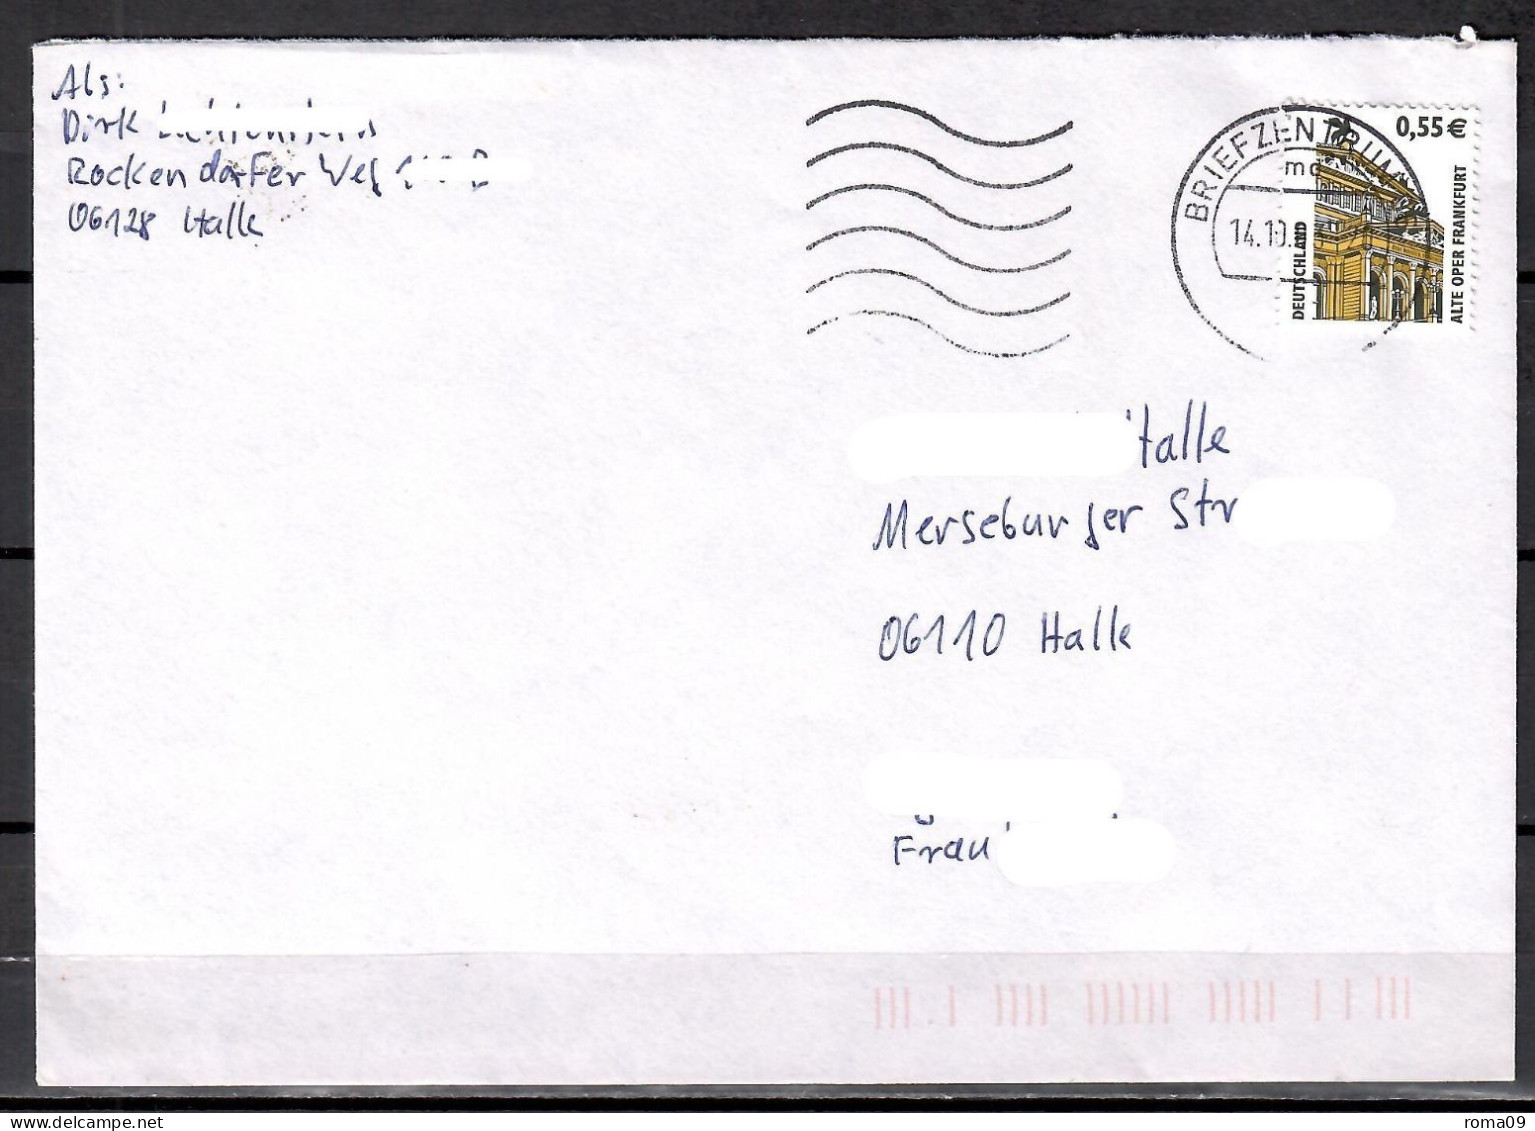 Als:
Dirk
Rockendorfer Weg
06128 Halle
BRIEFZENTRUM
14.10.
0,55€
DEUTSCHLAND
ALTE OPER FRANKFURT
Halle
Merseburger Str
06110 Halle
Frau
www.delcampe.net
roma09